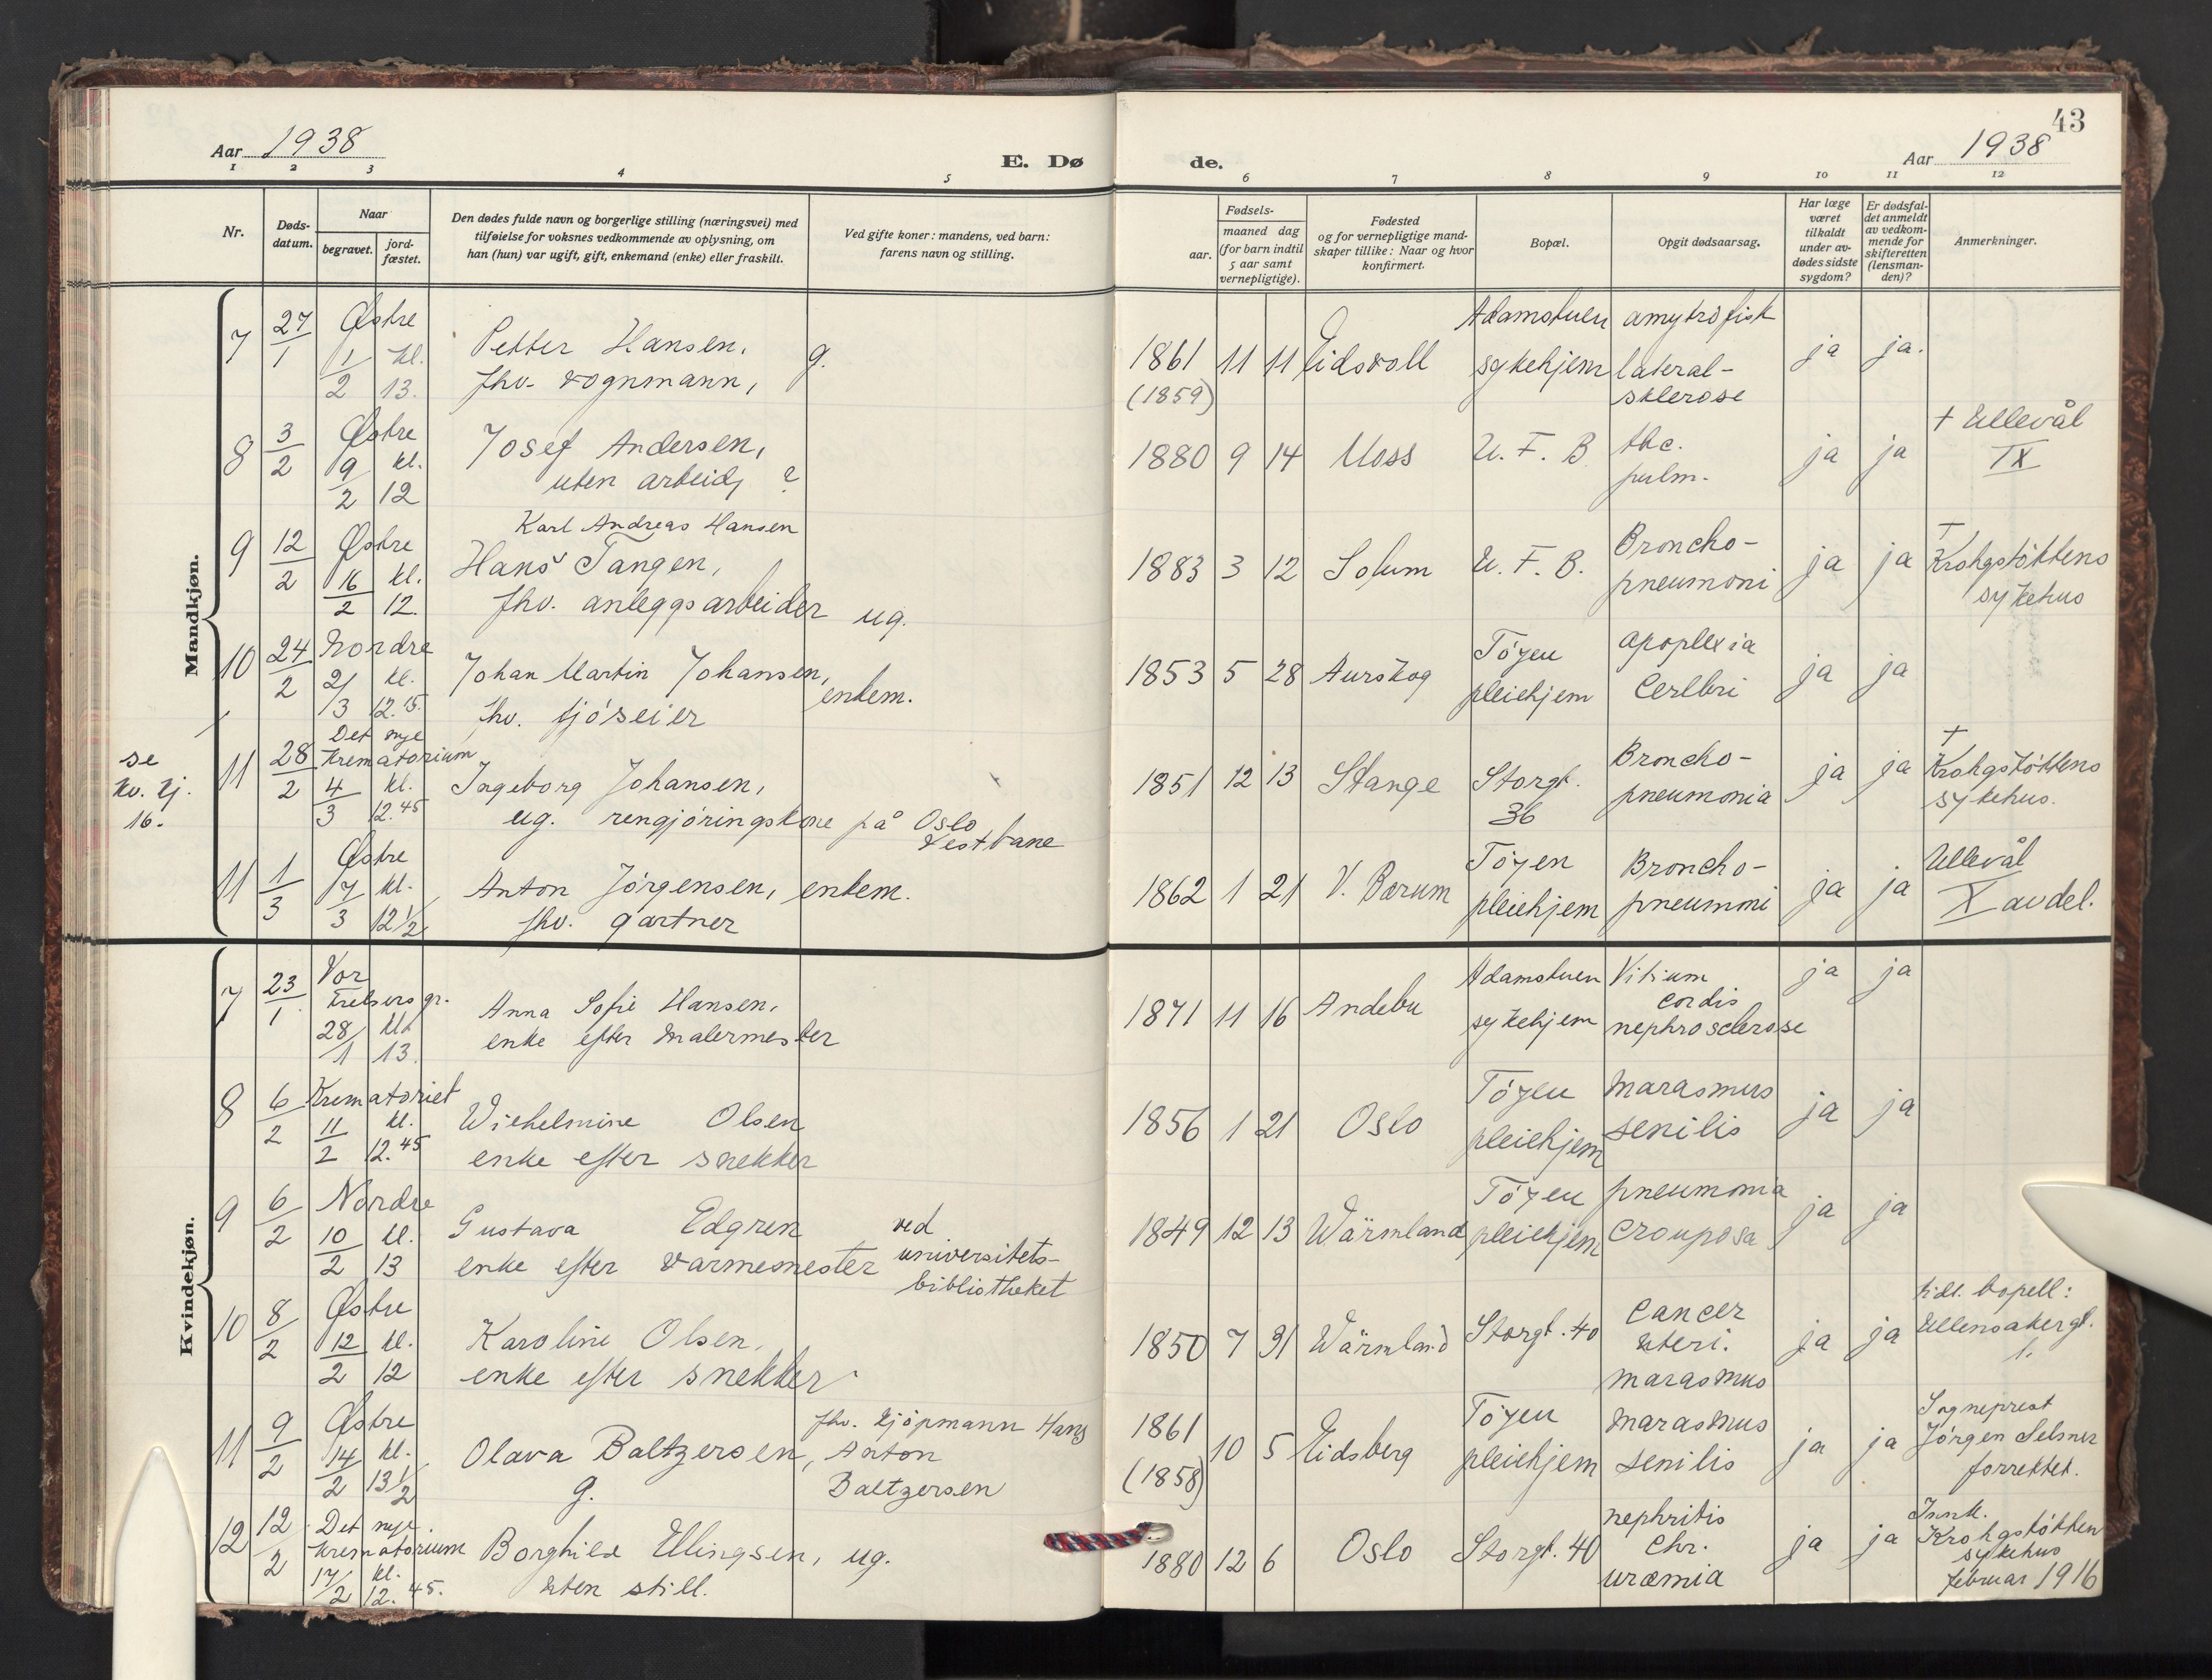 43
Aar 1938
E. Dø
de.
Aar 1938
1 2 3 4 5 6 7 8 9 10 11 12
Nr.
Døds-
datum.
Naar
begravet.
jord-
fæstet.
Den dødes fulde navn og borgerlige stilling (næringsvei) med
tilføielse for voksnes vedkommende av oplysning, om
han (hun) var ugift, gift, enkemand (enke) eller fraskilt.
Ved gifte koner: mandens, ved barn:
farens navn og stilling.
Fødsels-
aar.
maaned dag
(for barn indtil
5 aar samt
vernepligtige).
Fødested
og for vernepligtige mand-
skaper tillike: Naar og hvor
konfirmert.
Bopæl.
Opgit dødsaarsag.
Har læge
været
tilkaldt
under av-
dødes sidste
sygdom?
Er dødsfal-
det anmeldt
av vedkom-
mende for
skifteretten
(lensman-
den)?
Anmerkninger.
Mandkjøn.
7 27/1 Østre
1/2 kl. 13.
Petter Hansen,
fhv. vognmann, g.
1861 11 11 Eidsvoll
(1859)
Adamstuen
sykehjem
amytrofisk
lateral-
sklerose
ja ja.
8 3/2 Østre
9/2 kl. 12
Josef Andersen,
uten arbeid, ?
1880 9 14 Moss U. F. B.
tbc.
pulm.
ja ja
+ Ullevål
IX
9 12/2 Østre
16/2 kl. 12.
Karl Andreas Hansen
Hans Tangen,
fhv. anleggsarbeider ug.
1883 3 12 Solum U. F. B.
Broncho-
pneumoni
ja ja
+
Krohgstøttens
sykehus
10 24/2 Nordre
2/3 kl. 12.15.
Johan Martin Johansen,
fhv. fjøseier enkem.
1853 5 28 Aurskog
Tøyen
pleiehjem
apoplexia
Cerlbri
ja ja
se
kv. kj.
16.
11 28/2 Det nye
Krematorium
4/3 kl. 12.45
Ingeborg Johansen,
ug. rengjøringskone på Oslo
Vestbane
1851 12 13 Stange
Storgt.
36
Broncho-
pneumonia
ja ja
+
Krohgstøttens
sykehus.
11 1/3 Østre
7/3 kl. 12 1/2
Anton Jørgensen, enkem.
fhv. gartner
1862 1 21 V. Bærum
Tøyen
pleiehjem
Broncho-
pneumoni
ja ja
Ullevål
X avdel.
Kvindekjøn.
7 23/1 Vor
Frelsers gr.
28/1 kl. 13.
Anna Sofie Hansen,
enke efter malermester
1871 11 16 Andebu
Adamstuen
sykehjem
Vitium
cordis
nephrosclerose
ja ja
8 6/2 Krematoriet
11/2 kl. 12.45
Wilhelmine Olsen
enke efter snekker
1856 1 21 Oslo
Tøyen
pleiehjem
Marasmus
senilis
ja ja
9 6/2 Nordre
10/2 kl. 13
Gustava Edgren
enke efter varmemester
ved
universitets-
bibliotheket
1849 12 13 Wärmland
Tøyen
pleiehjem
pneumonia
crouposa
ja ja
10 8/2 Østre
12/2 kl. 12
Karoline Olsen,
enke efter snekker
1850 7 31 Wärmland Storgt. 40
Cancer
uteri.
marasmus
ja ja
tidl. bopell:
Ullensakergt.
1.
11 9/2 Østre
14/2 kl. 13 1/2
Olava Baltzersen,
g.
fhv. kjøpmann Hans
Anton
Baltzersen
1861 10 5 Eidsberg
(1858)
Tøyen
pleiehjem
Marasmus
senilis
ja ja
Sogneprest
Jørgen Selsner
forrettet.
12 12/2 Det nye
krematorium
17/2 kl. 12.45.
Borghild Ellingsen, ug.
uten still.
1880 12 6 Oslo Storgt. 40
nephritis
chr.
uræmia
ja ja
Innk.
Krohgstøtten
sykehus
februar 1916